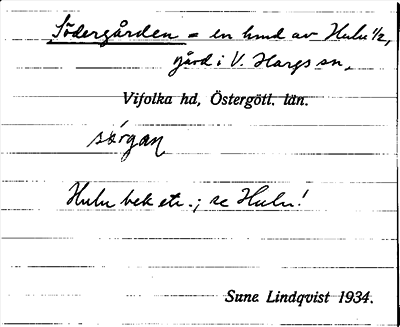 Södergården = en hmd av Hulu 1/2,
gård i V. Hargs sn,
Vifolka hd, Östergötl. län.
sörgan
Hulu bek etc.; se Hulu!
Sune Lindqvist 1934.